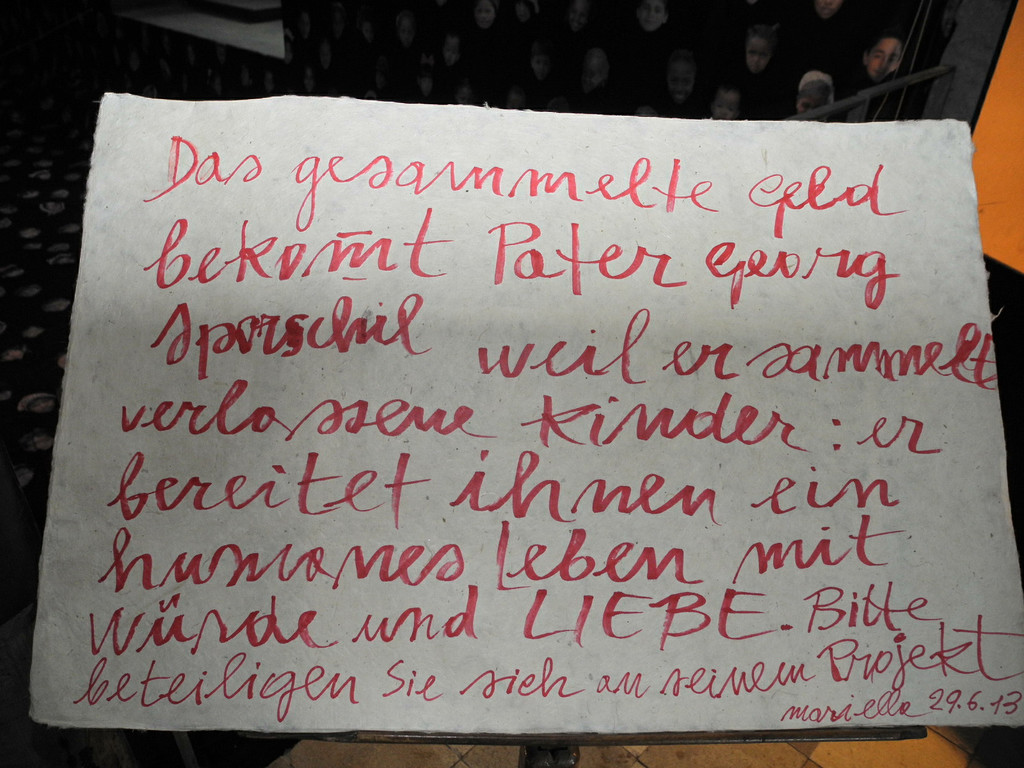 Das gesammelte Geld
bekom̅t Pater Georg
Sporschil weil er sammelt
verlassene Kinder : er
bereitet ihnen ein
humanes Leben mit
Würde und LIEBE. Bitte
beteiligen Sie sich an seinem Projekt
mariella 29.6.13